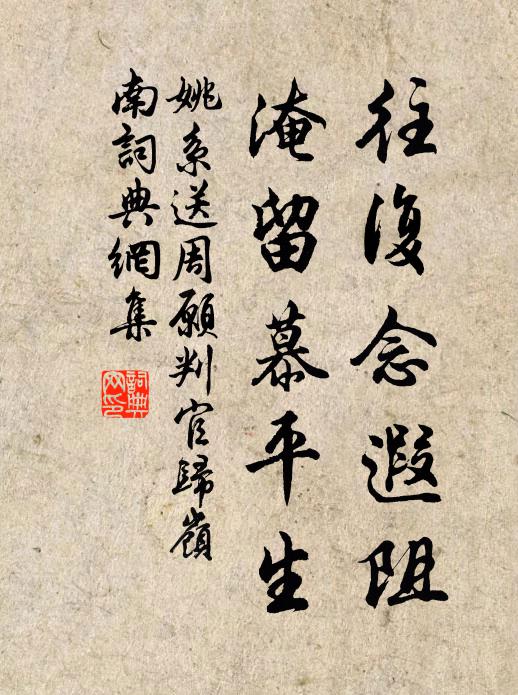 往復念遐阻
淹留慕平生
姚系送周願判官歸嶺
南詞典網集
詞典
網印